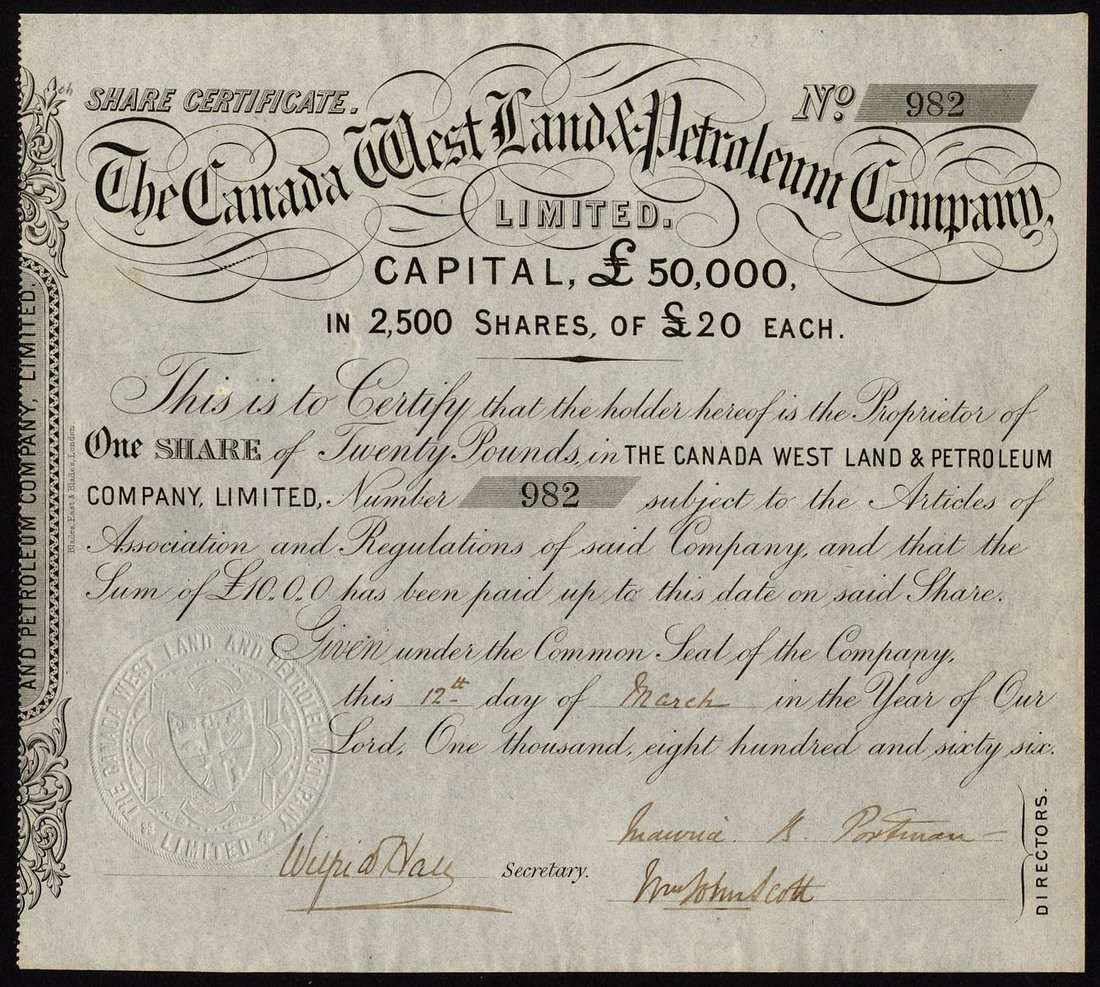 SHARE CERTIFICATE.
No. 982
The Canada West Land & Petroleum Company,
LIMITED.
CAPITAL, £50,000,
IN 2,500 SHARES, OF £20 EACH.
This is to Certify that the holder hereof is the Proprietor of
One SHARE of Twenty Pounds, in THE CANADA WEST LAND & PETROLEUM
COMPANY, LIMITED, Number 982 subject to the Articles of
Association and Regulations of said Company, and that the
Sum of £10.0.0 has been paid up to this date on said Share.
Given under the Common Seal of the Company,
this 12th day of March in the Year of Our
Lord, One thousand, eight hundred and sixty six.
Maurice B. Portman
Wilfrid Hall Secretary.
Wm John Scott
DIRECTORS.
THE CANADA WEST LAND AND PETROLEUM COMPANY
LIMITED
AND PETROLEUM COMPANY, LIMITED.
Blades, East & Blades, London.